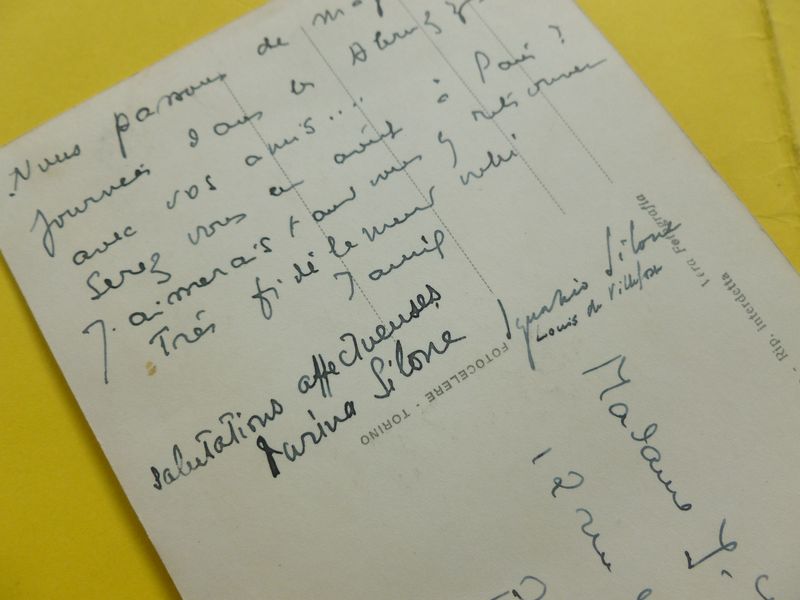 Nous passons de
journées dans les Abruzzes
avec vos amis....
Serez vous en août à Paris?
J'aimerais tant vous y retrouver
Très fidèlement
salutations affectueuses
Darina Silone
Ignazio Silone
Louis de Villefosse
FOTOCELERE - TORINO
Rip. Interdetta Vera Fotografia
Madame
12 rue